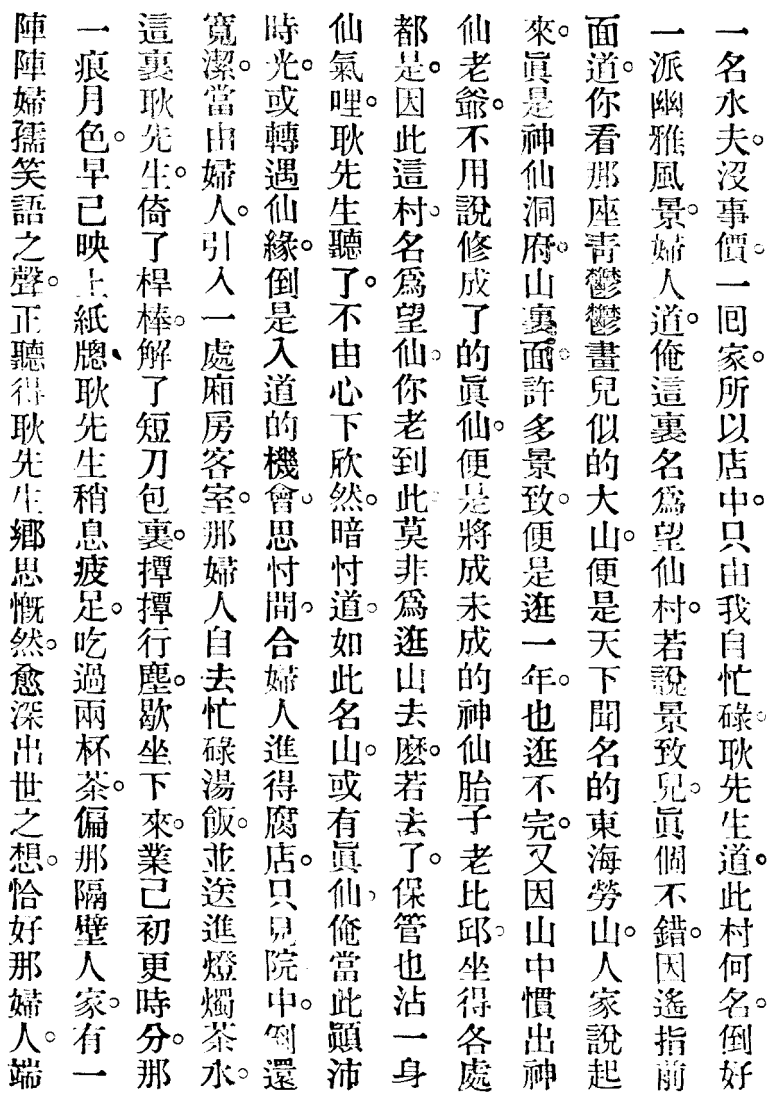 一名水夫。沒事價。一回家。所以店中。只由我自忙碌。耿先生道。此村何名。倒好
一派幽雅風景。婦人道。俺這裏名爲望仙村。若說景致兒。眞個不錯。因遙指前
面道。你看那座靑鬱鬱畫兒似的大山。便是天下聞名的東海勞山。人家說起
來。眞是神仙洞府。山裏面。許多景致。便是逛一年。也逛不完。又因山中慣出神
仙老爺。不用說修成了的眞仙。便是將成未成的神仙胎子老比邱。坐得各處
都是。因此這村。名爲望仙。你老到此。莫非爲逛山去麽。若去了。保管也沾一身
仙氣哩。耿先生聽了。不由心下欣然。暗忖道。如此名山。或有眞仙。俺當此顚沛
時光。或轉遇仙緣。倒是入道的機會。思忖間。合婦人進得腐店。只見院中。倒還
寬潔。當由婦人。引入一處廂房客室。那婦人自去忙碌湯飯。並送進燈燭茶水。
這裏耿先生。倚了桿棒。解了短刀包裹。撣撣行塵。歇坐下來。業已初更時分。那
一痕月色。早已映上紙牕、耿先生稍息疲足。吃過兩杯茶。偏那隔壁人家。有一
陣陣婦孺笑語之聲。正聽得耿先生鄉思慨然。愈深出世之想。恰好那婦人。端